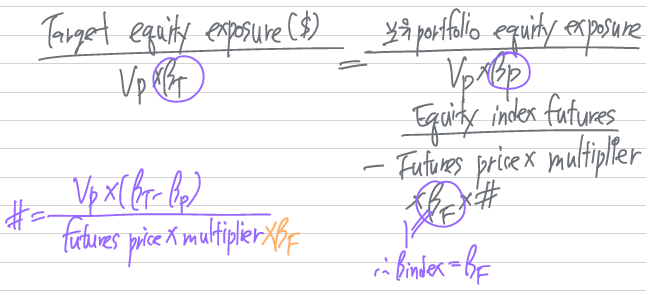 Target equity exposure ($) = 보유 portfolio equity exposure
Vp × βT
Vp × βp
Equity index futures
− Futures price × multiplier
× βF × #
# = Vp × (βT - βp)
futures price × multiplier × βF
∴ βindex = βF